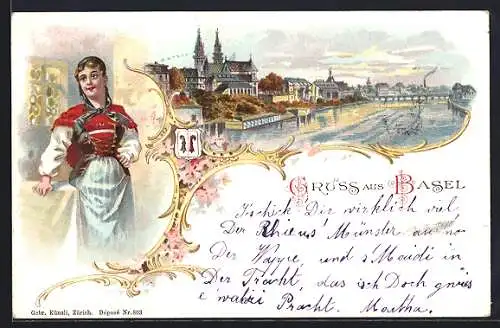 GRUSS AUS BASEL
I schick Dir wirklich viel,
Der Rhein us' Münster au no
Der Wappe, und s Meidi in
Der Tracht, das isch Doch gwiss
e wahri Pracht. Martha.
Gebr. Künzli, Zürich. Déposé Nr. 803